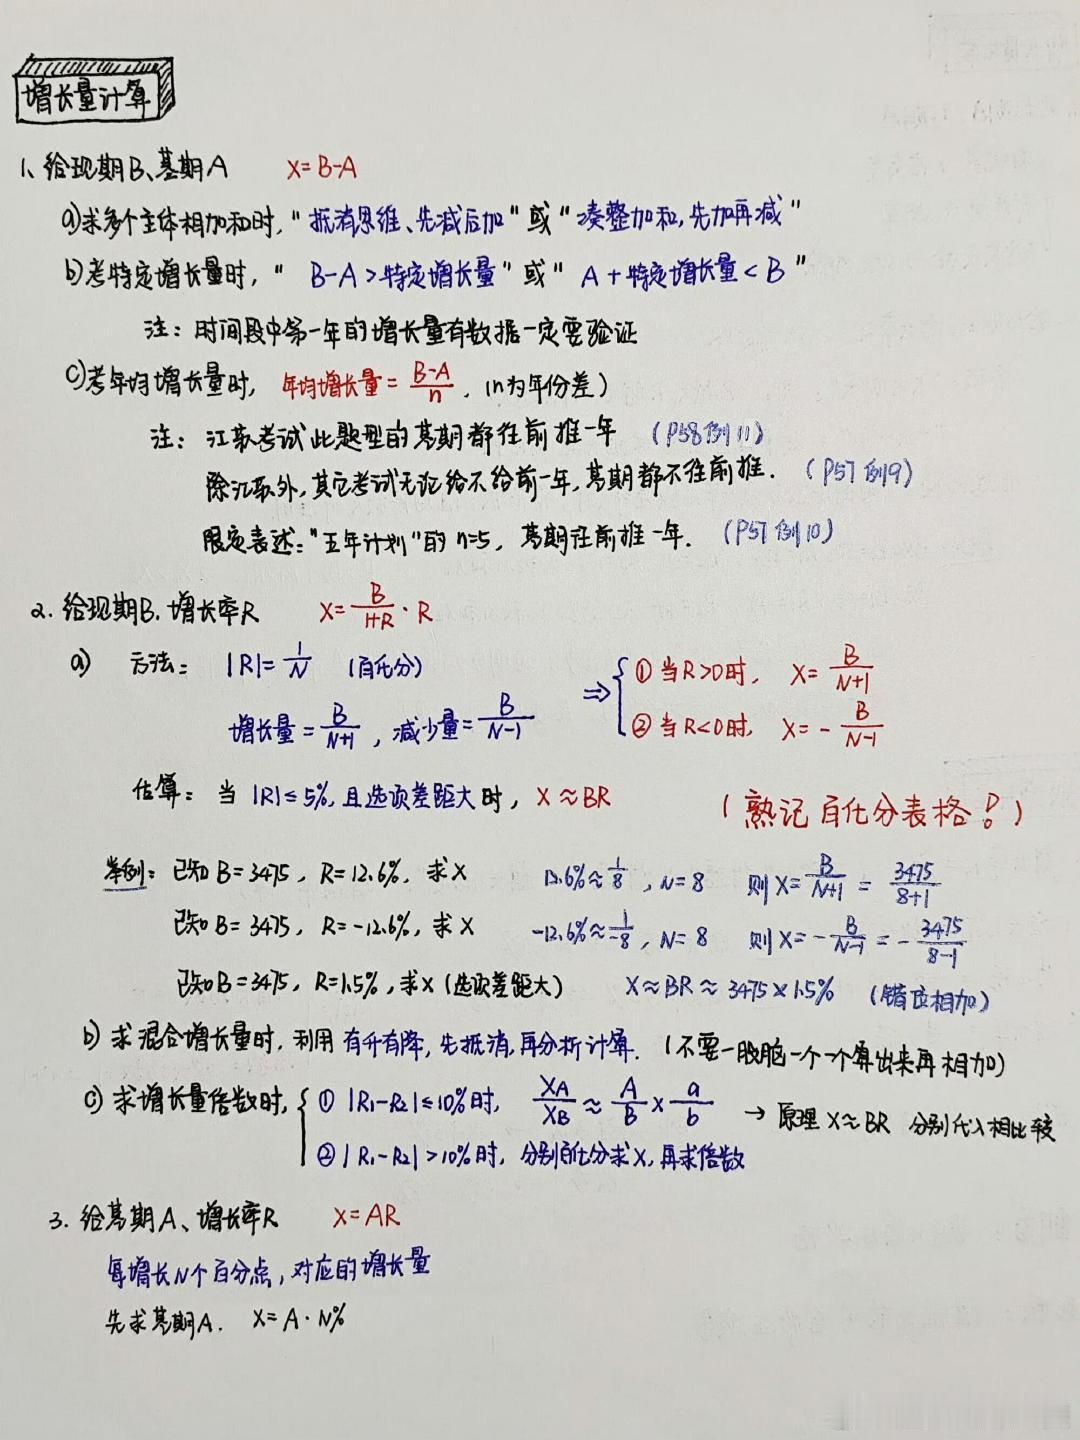 增长量计算
1、给现期B、基期A X=B-A
a)求多个主体相加和时，"抵消思维、先减后加"或"凑整加和，先加再减"
b)考特定增长量时，"B-A>特定增长量"或"A+特定增长量<B"
注：时间段中第一年的增长量有数据一定要验证
c)考年均增长量时，年均增长量=B-A/n，(n为年份差)
注：江苏考试此题型的基期都往前推一年 (P58例11)
除江苏外，其它考试无论给不给前一年，基期都不往前推. (P57例9)
限定表述："五年计划"的n=5，基期往前推一年. (P57例10)
2. 给现期B.增长率R X=B/1+R·R
a) 方法： |R|=1/N (百化分) ⇒{①当R>0时， X=B/N+1
增长量=B/N+1，减少量=B/N-1 ②当R<0时， X=-B/N-1
估算：当|R|≤5%，且选项差距大时，X≈BR (熟记百化分表格!)
举例：已知B=3475，R=12.6%，求X 12.6%≈1/8，N=8 则X=B/N+1=3475/8+1
已知B=3475，R=-12.6%，求X -12.6%≈1/-8，N=8 则X=-B/N-1=-3475/8-1
已知B=3475，R=1.5%，求X(选项差距大) X≈BR≈3475×1.5% (错位相加)
b) 求混合增长量时，利用有升有降，先抵消，再分析计算. (不要一股脑一个一个算出来再相加)
c) 求增长量倍数时，{①|R₁-R₂|≤10%时， XA/XB≈A/B×a/b → 原理X≈BR 分别代入相比较
②|R₁-R₂|>10%时，分别百化分求X，再求倍数
3. 给基期A、增长率R X=AR
每增长N个百分点，对应的增长量
先求基期A. X=A·N%